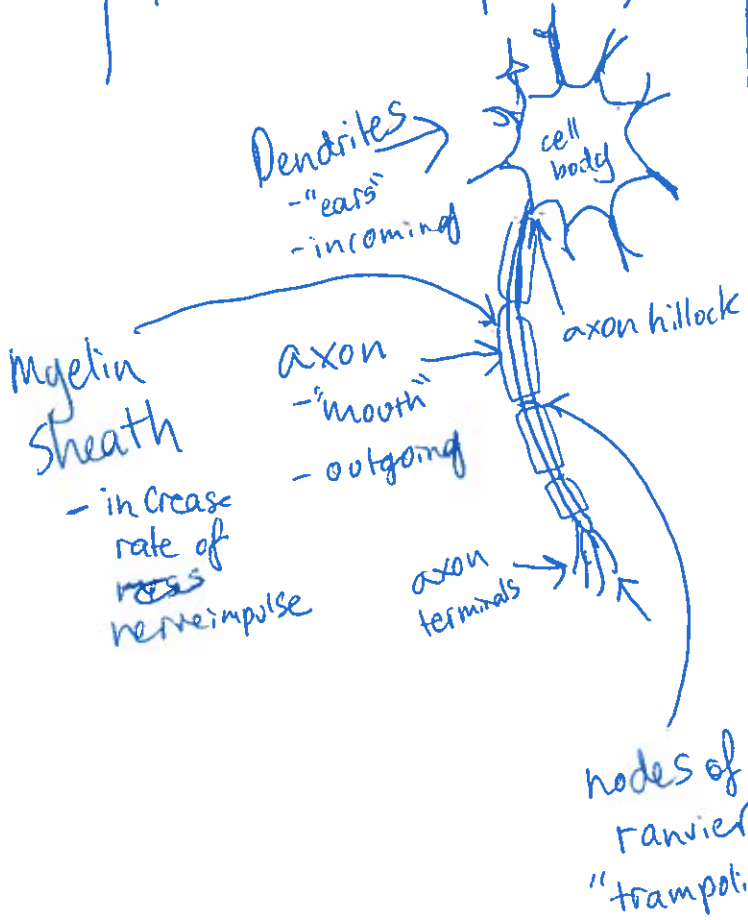 Dendrites
-"ears"
-incoming
cell
body
axon hillock
Myelin
Sheath
- increase
rate of
nerve impulse
axon
-"mouth"
- outgoing
axon
terminals
nodes of
ranvier
"trampoli